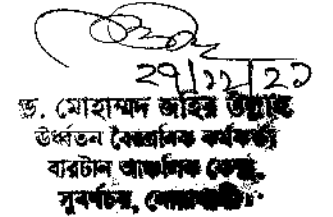 ২৭/১২/২১
ড. মোহাম্মদ জহির উল্লাহ
উর্ধ্বতন বৈজ্ঞানিক কর্মকর্তা
বারটান আঞ্চলিক কেন্দ্র,
সুবর্ণচর, নোয়াখালী।